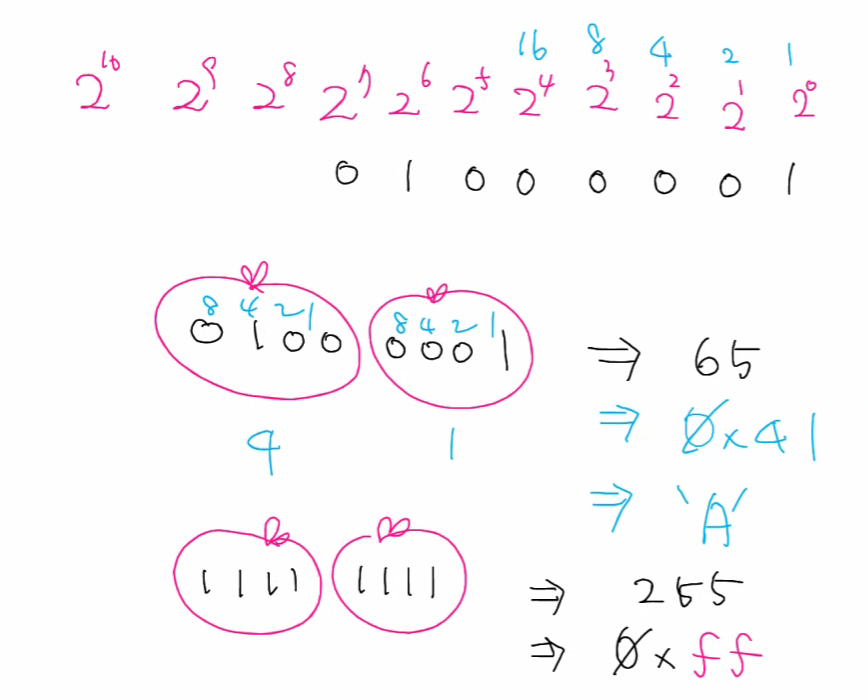 16 8 4 2 1
2¹⁰ 2⁹ 2⁸ 2⁷ 2⁶ 2⁵ 2⁴ 2³ 2² 2¹ 2⁰
0 1 0 0 0 0 0 1
8 4 2 1 8 4 2 1
0 1 0 0 0 0 0 1 ⇒ 65
4 1 ⇒ 0x41
⇒ 'A'
1 1 1 1 1 1 1 1 ⇒ 255
⇒ 0xff